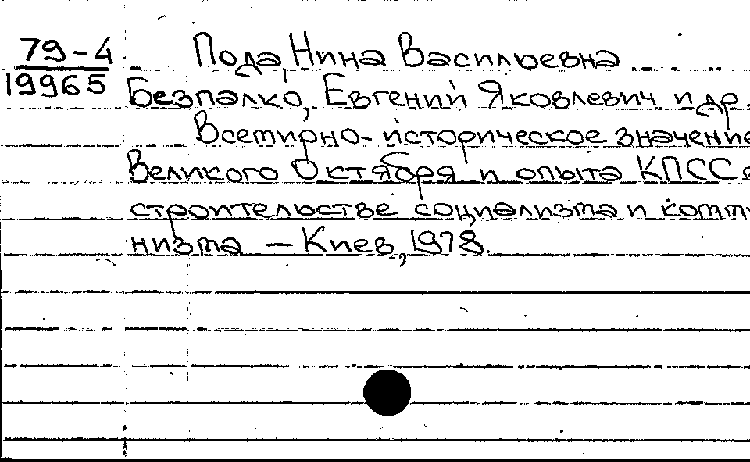 79-4 Пода, Нина Васильевна
19965 Безпалко, Евгений Яковлевич и др.
Всемирно-историческое значение
Великого Октября и опыта КПСС в
строительстве социализма и комму
низма - Киев, 1978.